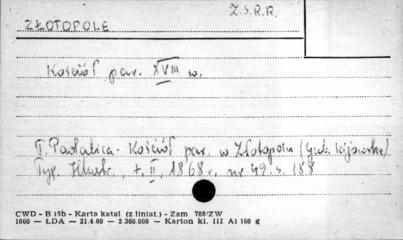 Z.S.R.R.
ZŁOTOPOLE
Kościół par. XVIII w.
T. Padalica - Kościół par. w Złotopolu (gub. kijowska)
Tyg. Illustr., t. II, 1868 r. nr 49. s. 188
CWD - B 15b - Karta katal (z liniat.) - Zam 788/ZW
1060 — ŁDA — 21.4.60 — 2 360.000 — Karton kl. III A1 160 g